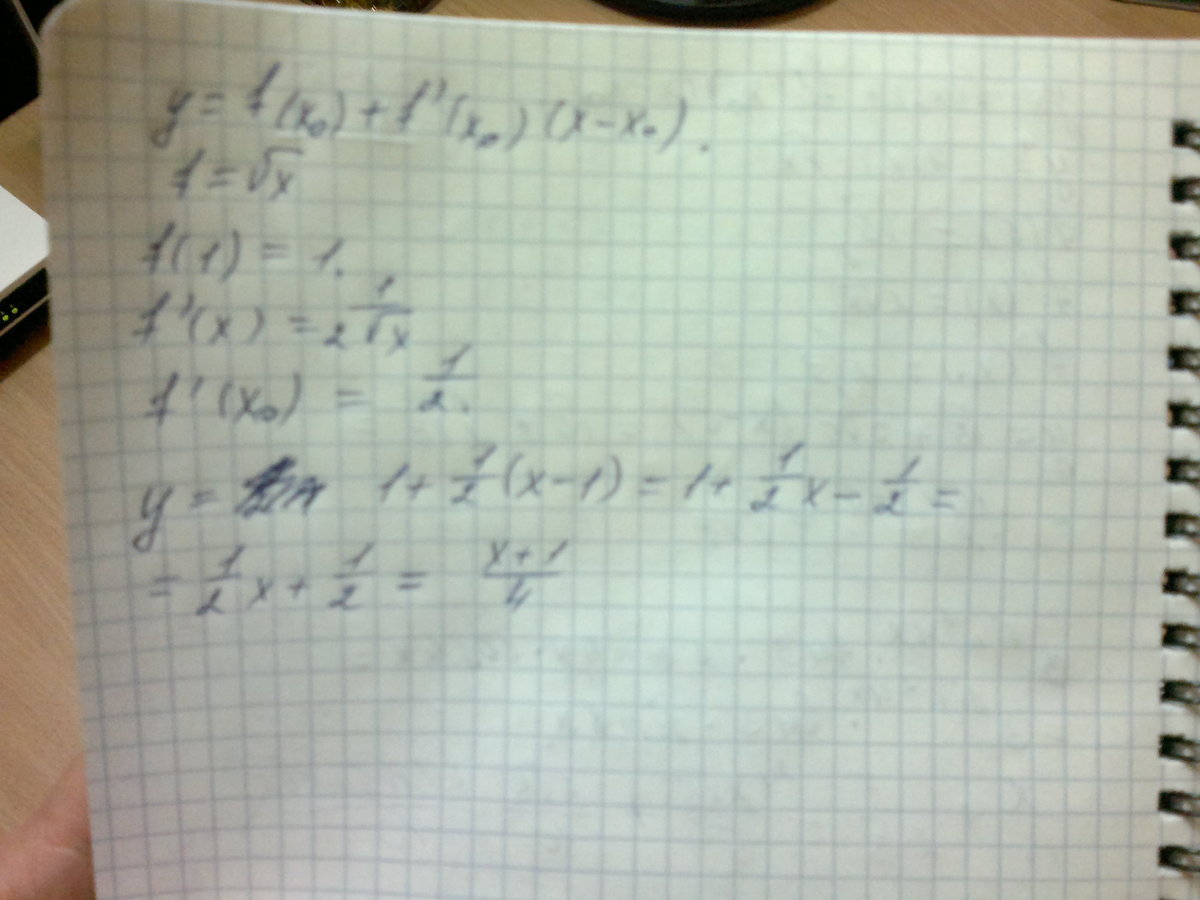 y = f(x₀) + f'(x₀)(x-x₀).
f = √x
f(1) = 1.
f'(x) = 1/(2√x)
f'(x₀) = 1/2.
y = 1 + 1/2(x-1) = 1 + 1/2x - 1/2 =
= 1/2x + 1/2 = (x+1)/4